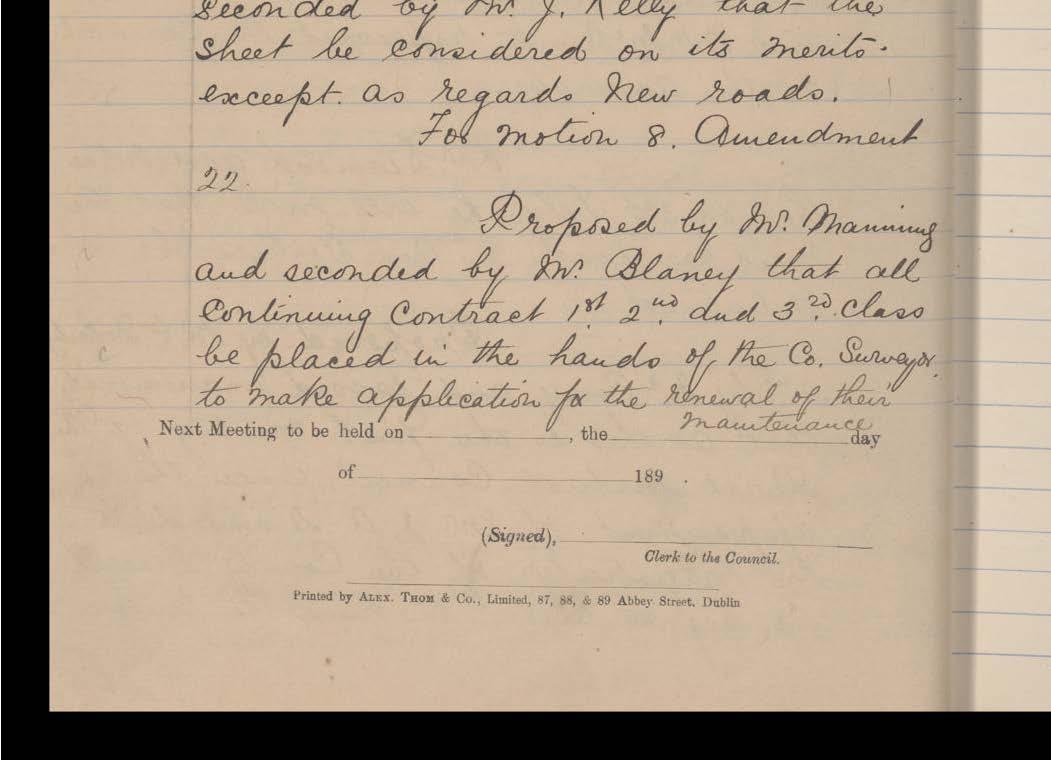 seconded by Mr. J. Kelly that the
sheet be considered on its merits.
exceept. as regards New roads.
For motion 8. Amendment
22.
Proposed by Mr. Manning
and seconded by Mr. Blaney that all
Continuing Contract 1st 2nd and 3rd Class
be placed in the hands of the Co. Surveyor.
to make application for the renewal of their
maintenance
Next Meeting to be held on , the day
of 189 .
(Signed),
Clerk to the Council.
Printed by ALEX. THOM & Co., Limited, 87, 88, & 89 Abbey Street, Dublin